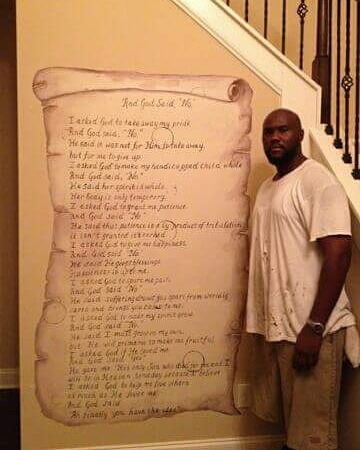 And God Said, "No"
I asked God to take away my pride
And God said, "No."
He said it was not for Him to take away,
but for me to give up.
I asked God to make my handicapped child whole
And God said, "No"
He said her spirit is whole
Her body is only temporary.
I asked God to grant me patience.
And God said "No"
He said that patience is a by product of tribulation
it isn't granted it's earned
I asked God to give me happiness
And God said "No"
He said He gives blessings
Happiness is up to me.
I asked God to spare me pain.
And God said "No"
He said, suffering draws you apart from worldly
cares and brings you closer to me.
I asked God to make my spirit grow
And God said No
He said I must grow on my own,
but He will prune me to make me fruitful
I asked God if He loved me
And God said, "Yes"
He gave me His only Son who died for me and I
will be in Heaven someday because I believe
I asked God to help me love others
as much as He loves me
And God said
"Ah finally, you have the idea"